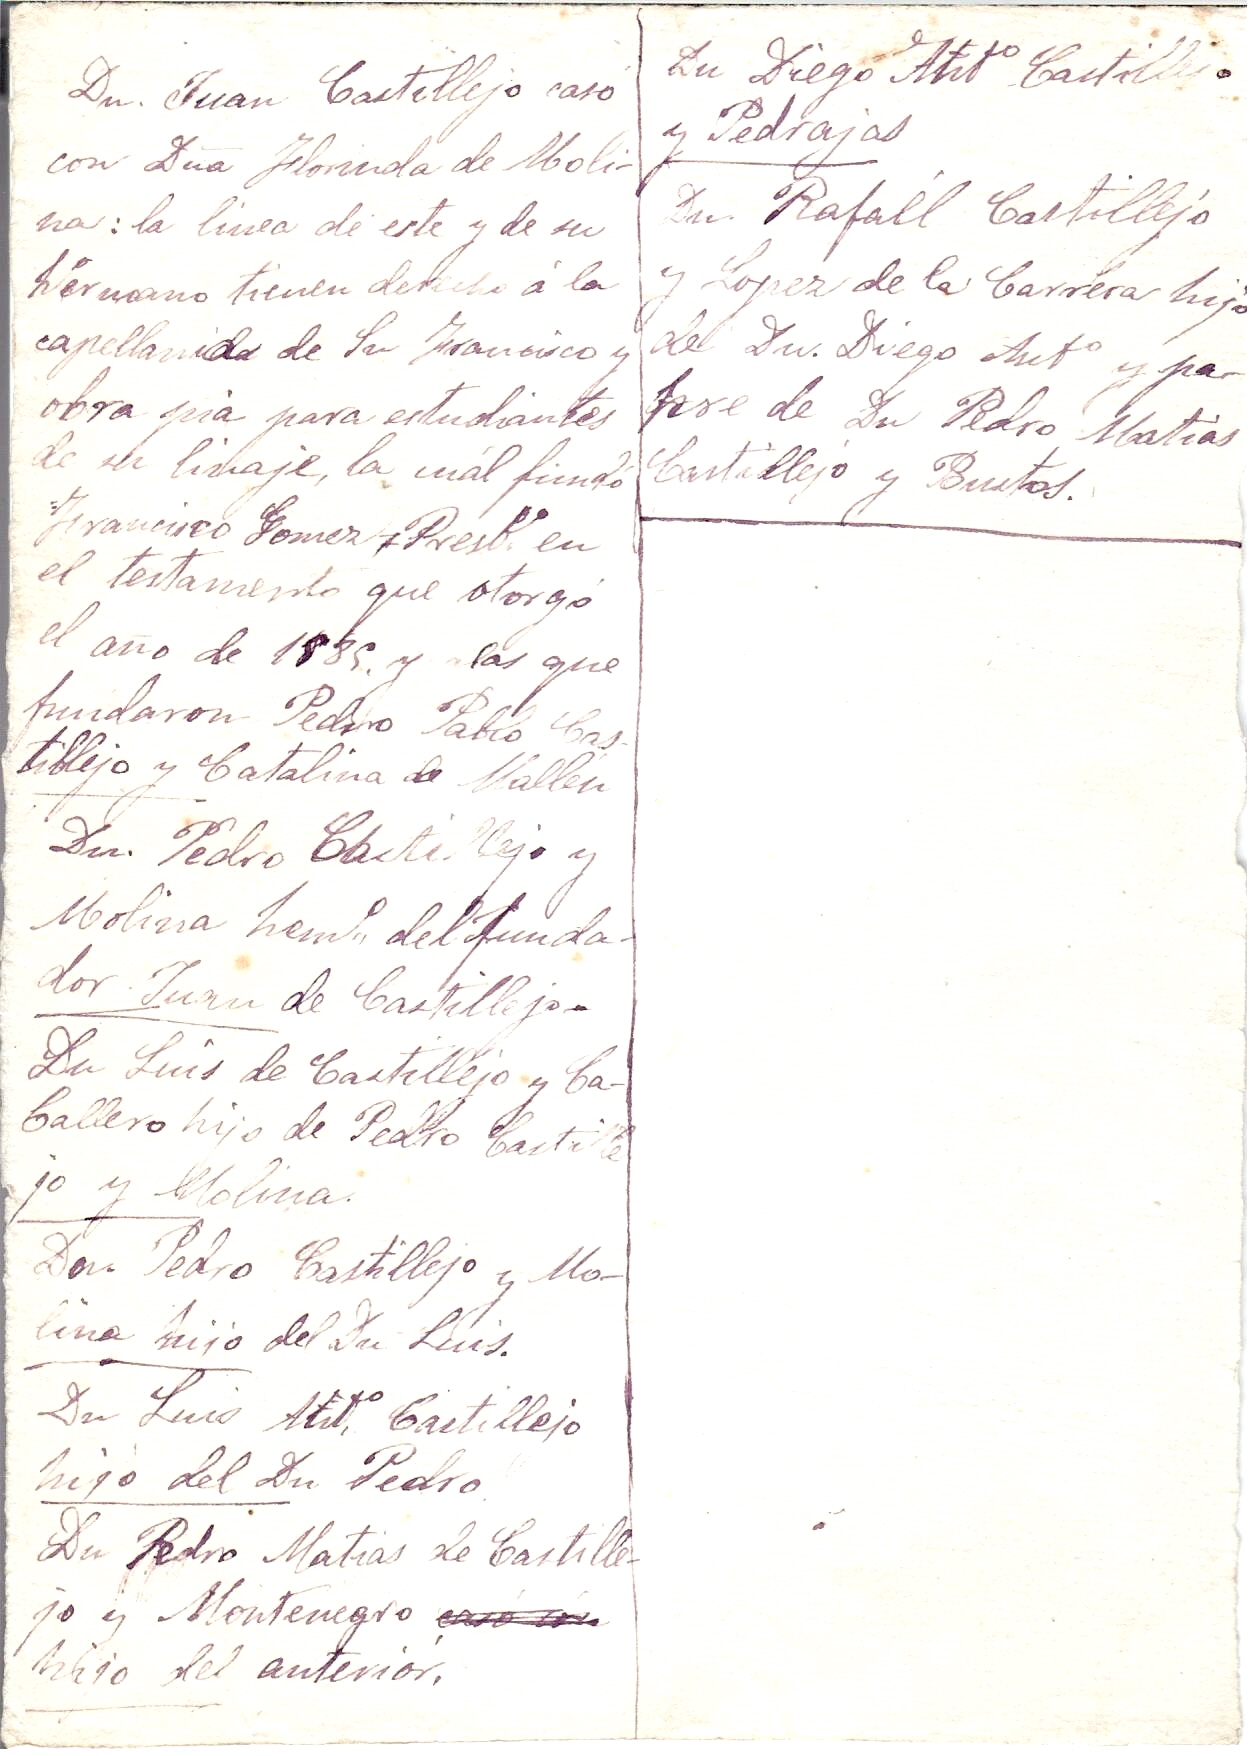 Dn. Juan Castillejo casó
con Dña Florinda de Moli-
na: la linea de este y de su
hermano tienen derecho á la
capellanida de Sn Francisco y
obra pia para estudiantes
de su linaje, la cuál fundó
Francisco Gomez Presb.º en
el testamento que otorgó
el año de y las que
fundaron Pedro Pablo Cas-
tillejo y Catalina de Mallen
Dn. Pedro Castillejo y
Molina hemº del funda-
dor Juan de Castillejo-
Dn Luis de Castillejo y Ca-
ballero hijo de Pedro Castille
jo y Molina.
Don Pedro Castillejo y Mo-
lina hijo del Dn Luis.
Dn Luis Antº Castillejo
hijo del Dn Pedro
Dn Pedro Matias de Castille-
jo y Montenegro casó con
hijo del anteriór.
Dn Diego Antº Castillejo
y Pedrajas
Dn. Rafaél Castillejo
y Lopez de la Carrera hijo
de Dn. Diego Antº y pa-
dre de Dn Pedro Matias
Castillejo y Bustos.